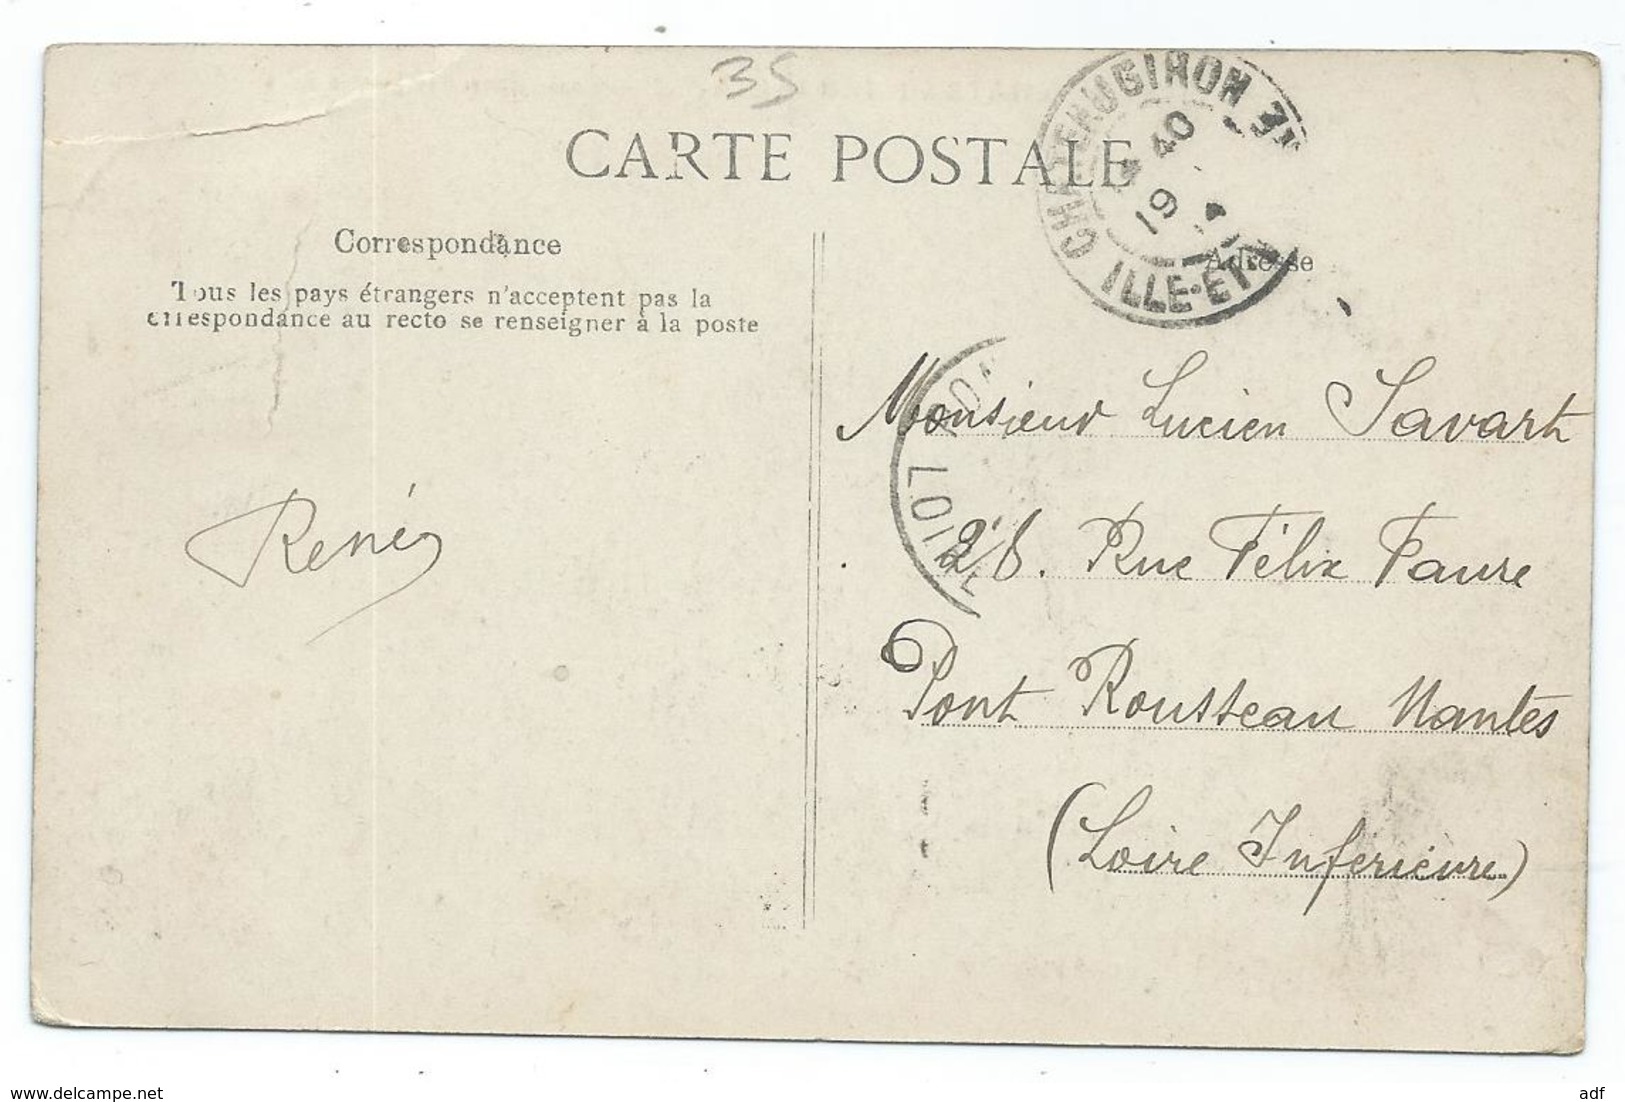 35
CARTE POSTALE
CHATEAUGIRON
40
19
ILLE-ET
Correspondance
Adresse
Tous les pays étrangers n'acceptent pas la
correspondance au recto se renseigner à la poste
LOIRE
Monsieur Lucien Savart
28. Rue Félix Faure
Pont Rousseau Nantes
(Loire Inferieure)
René
www.delcampe.net
adf